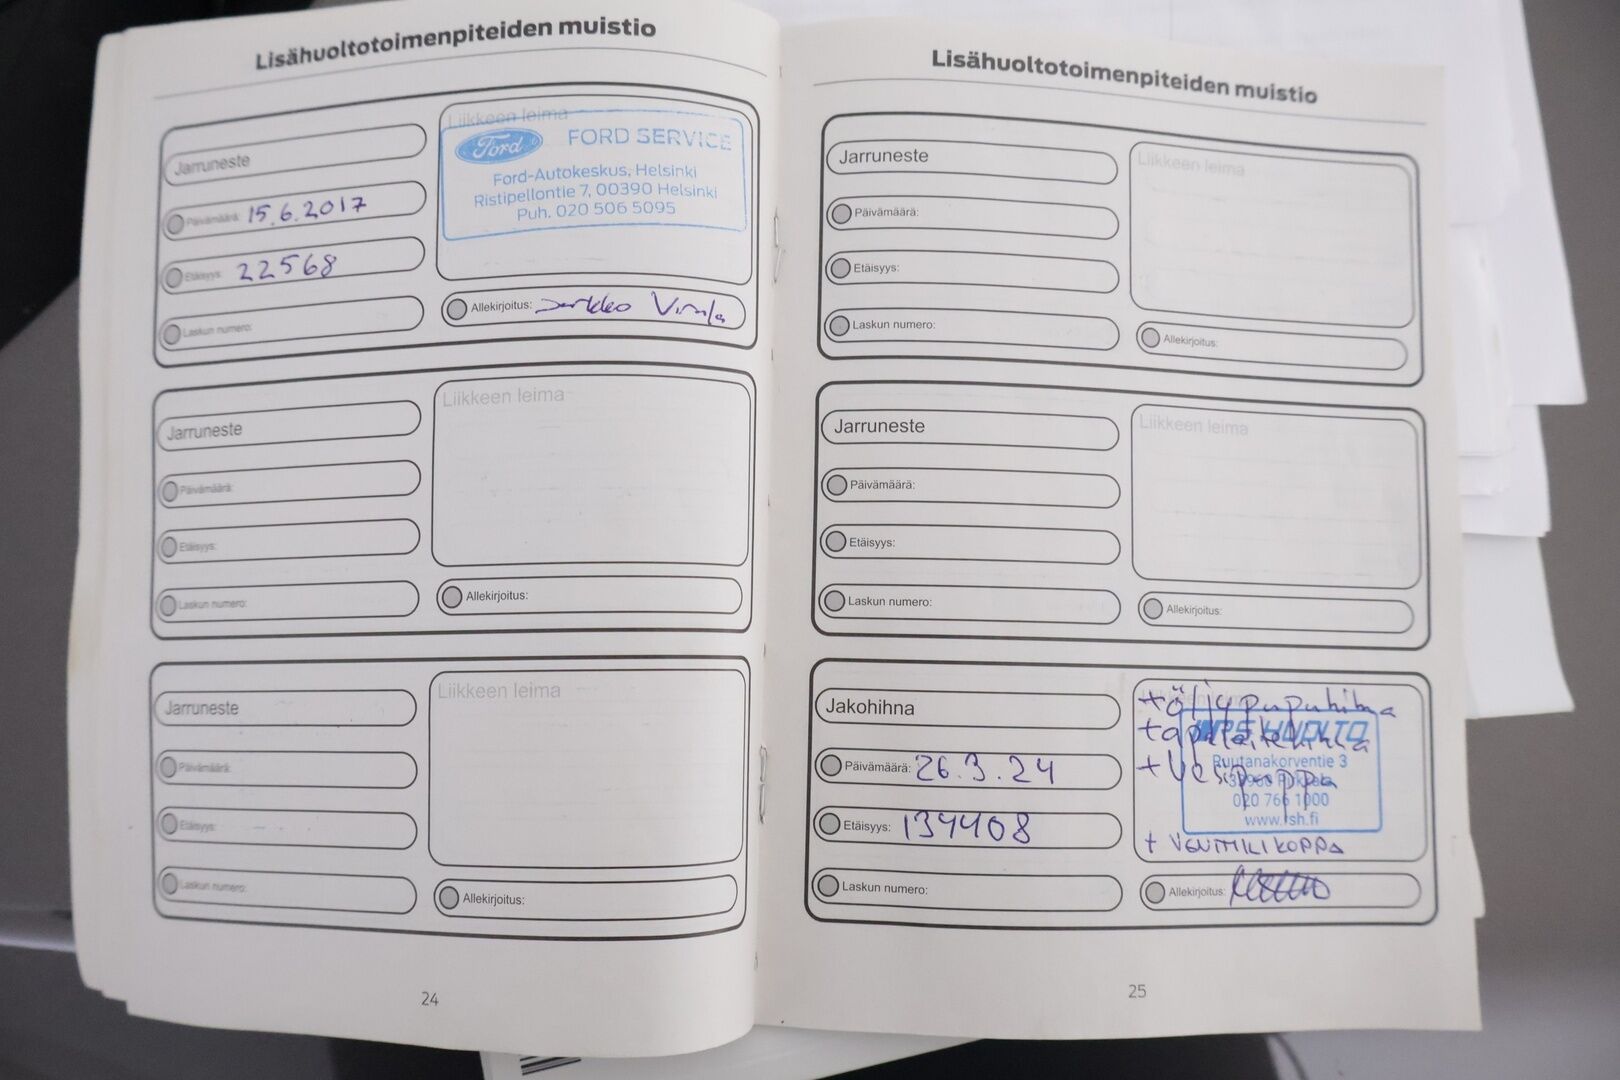 Lisähuoltotoimenpiteiden muistio
Jarruneste
Päivämäärä: 15.6.2017
Etäisyys: 22568
Laskun numero:
Liikkeen leima
Ford FORD SERVICE
Ford-Autokeskus, Helsinki
Ristipellontie 7, 00390 Helsinki
Puh. 020 506 5095
Allekirjoitus:
Jarruneste
Päivämäärä:
Etäisyys:
Laskun numero:
Liikkeen leima
Allekirjoitus:
Jarruneste
Päivämäärä:
Etäisyys:
Laskun numero:
Liikkeen leima
Allekirjoitus:
24
Lisähuoltotoimenpiteiden muistio
Jarruneste
Päivämäärä:
Etäisyys:
Laskun numero:
Liikkeen leima
Allekirjoitus:
Jarruneste
Päivämäärä:
Etäisyys:
Laskun numero:
Liikkeen leima
Allekirjoitus:
Jakohihna
Päivämäärä: 26.3.24
Etäisyys: 134408
Laskun numero:
+ öljypupuhihna
+ apulaitehihna
+ Vesipumppu
HUOLTO
Ruutanakorventie 3
020 766 1000
+ VENTTIILIKOPPA
Allekirjoitus:
25